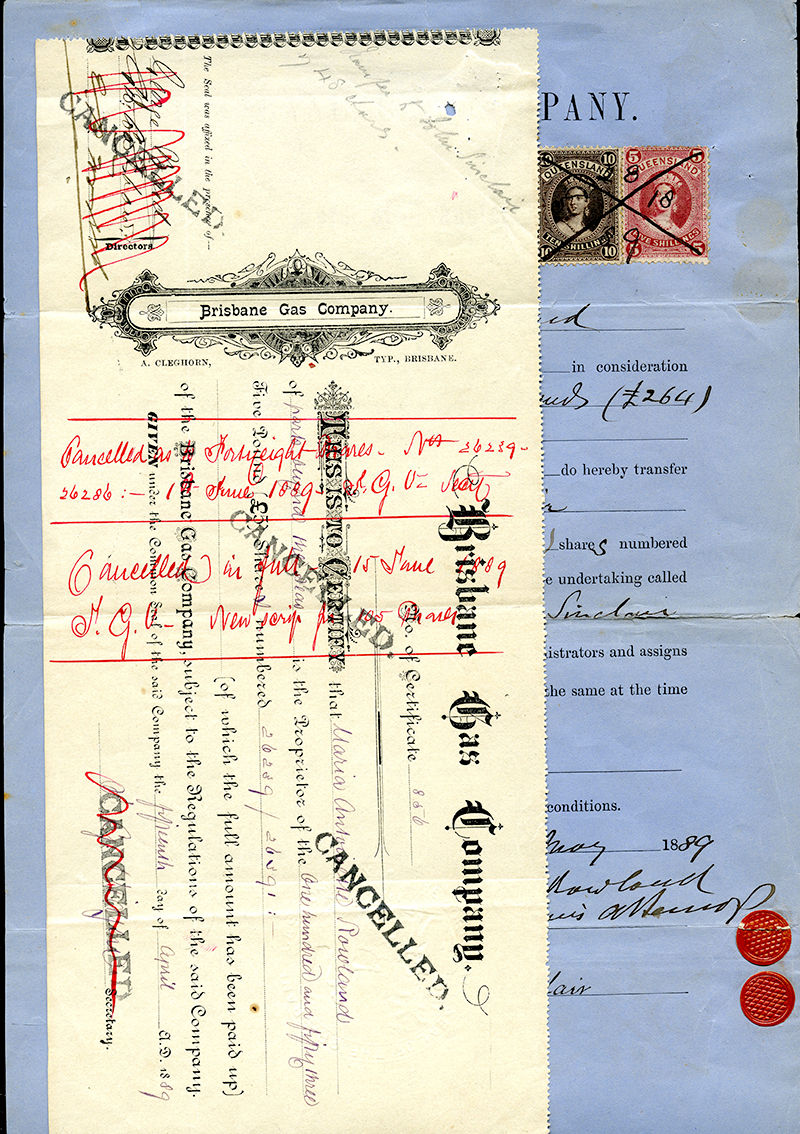 Transfer to John Sinclair
of 48 shares.
The Seal was affixed in the presence of—
Directors.
CANCELLED.
Brisbane Gas Company.
A. CLEGHORN, TYP., BRISBANE.
Brisbane Gas Company.
No. of Certificate 856
THIS IS TO CERTIFY that Maria Antoinette Rowland
of is the Proprietor of the One hundred and fifty three
Five Pound (£5) Shares numbered 26239/26391:-
(of which the full amount has been paid up)
of the Brisbane Gas Company, subject to the Regulations of the said Company.
GIVEN under the Common Seal of the said Company the fifteenth day of April A.D. 1889
Secretary.
CANCELLED
Cancelled as to Forty eight shares - Nos 26239-
26286:- 1st June 1889 - Secty
Cancelled in full - 15 June 1889
J. G. - New scrip for 105 shares
CANCELLED.
CANCELLED.
MPANY.
10 10
QUEENSLAND
TEN SHILLINGS
10
5 5
QUEENSLAND
FIVE SHILLINGS
5 5
8
18
9
in consideration
(£264)
do hereby transfer
shares numbered
e undertaking called
Sinclair
istrators and assigns
the same at the time
conditions.
May 1889
Rowland
his attorney
lair